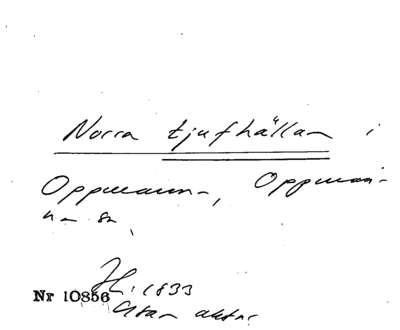 Norra tjufhällan i
Oppmanna, Oppman-
na sn
Nr 10856
H. 1833
Utan aktnr